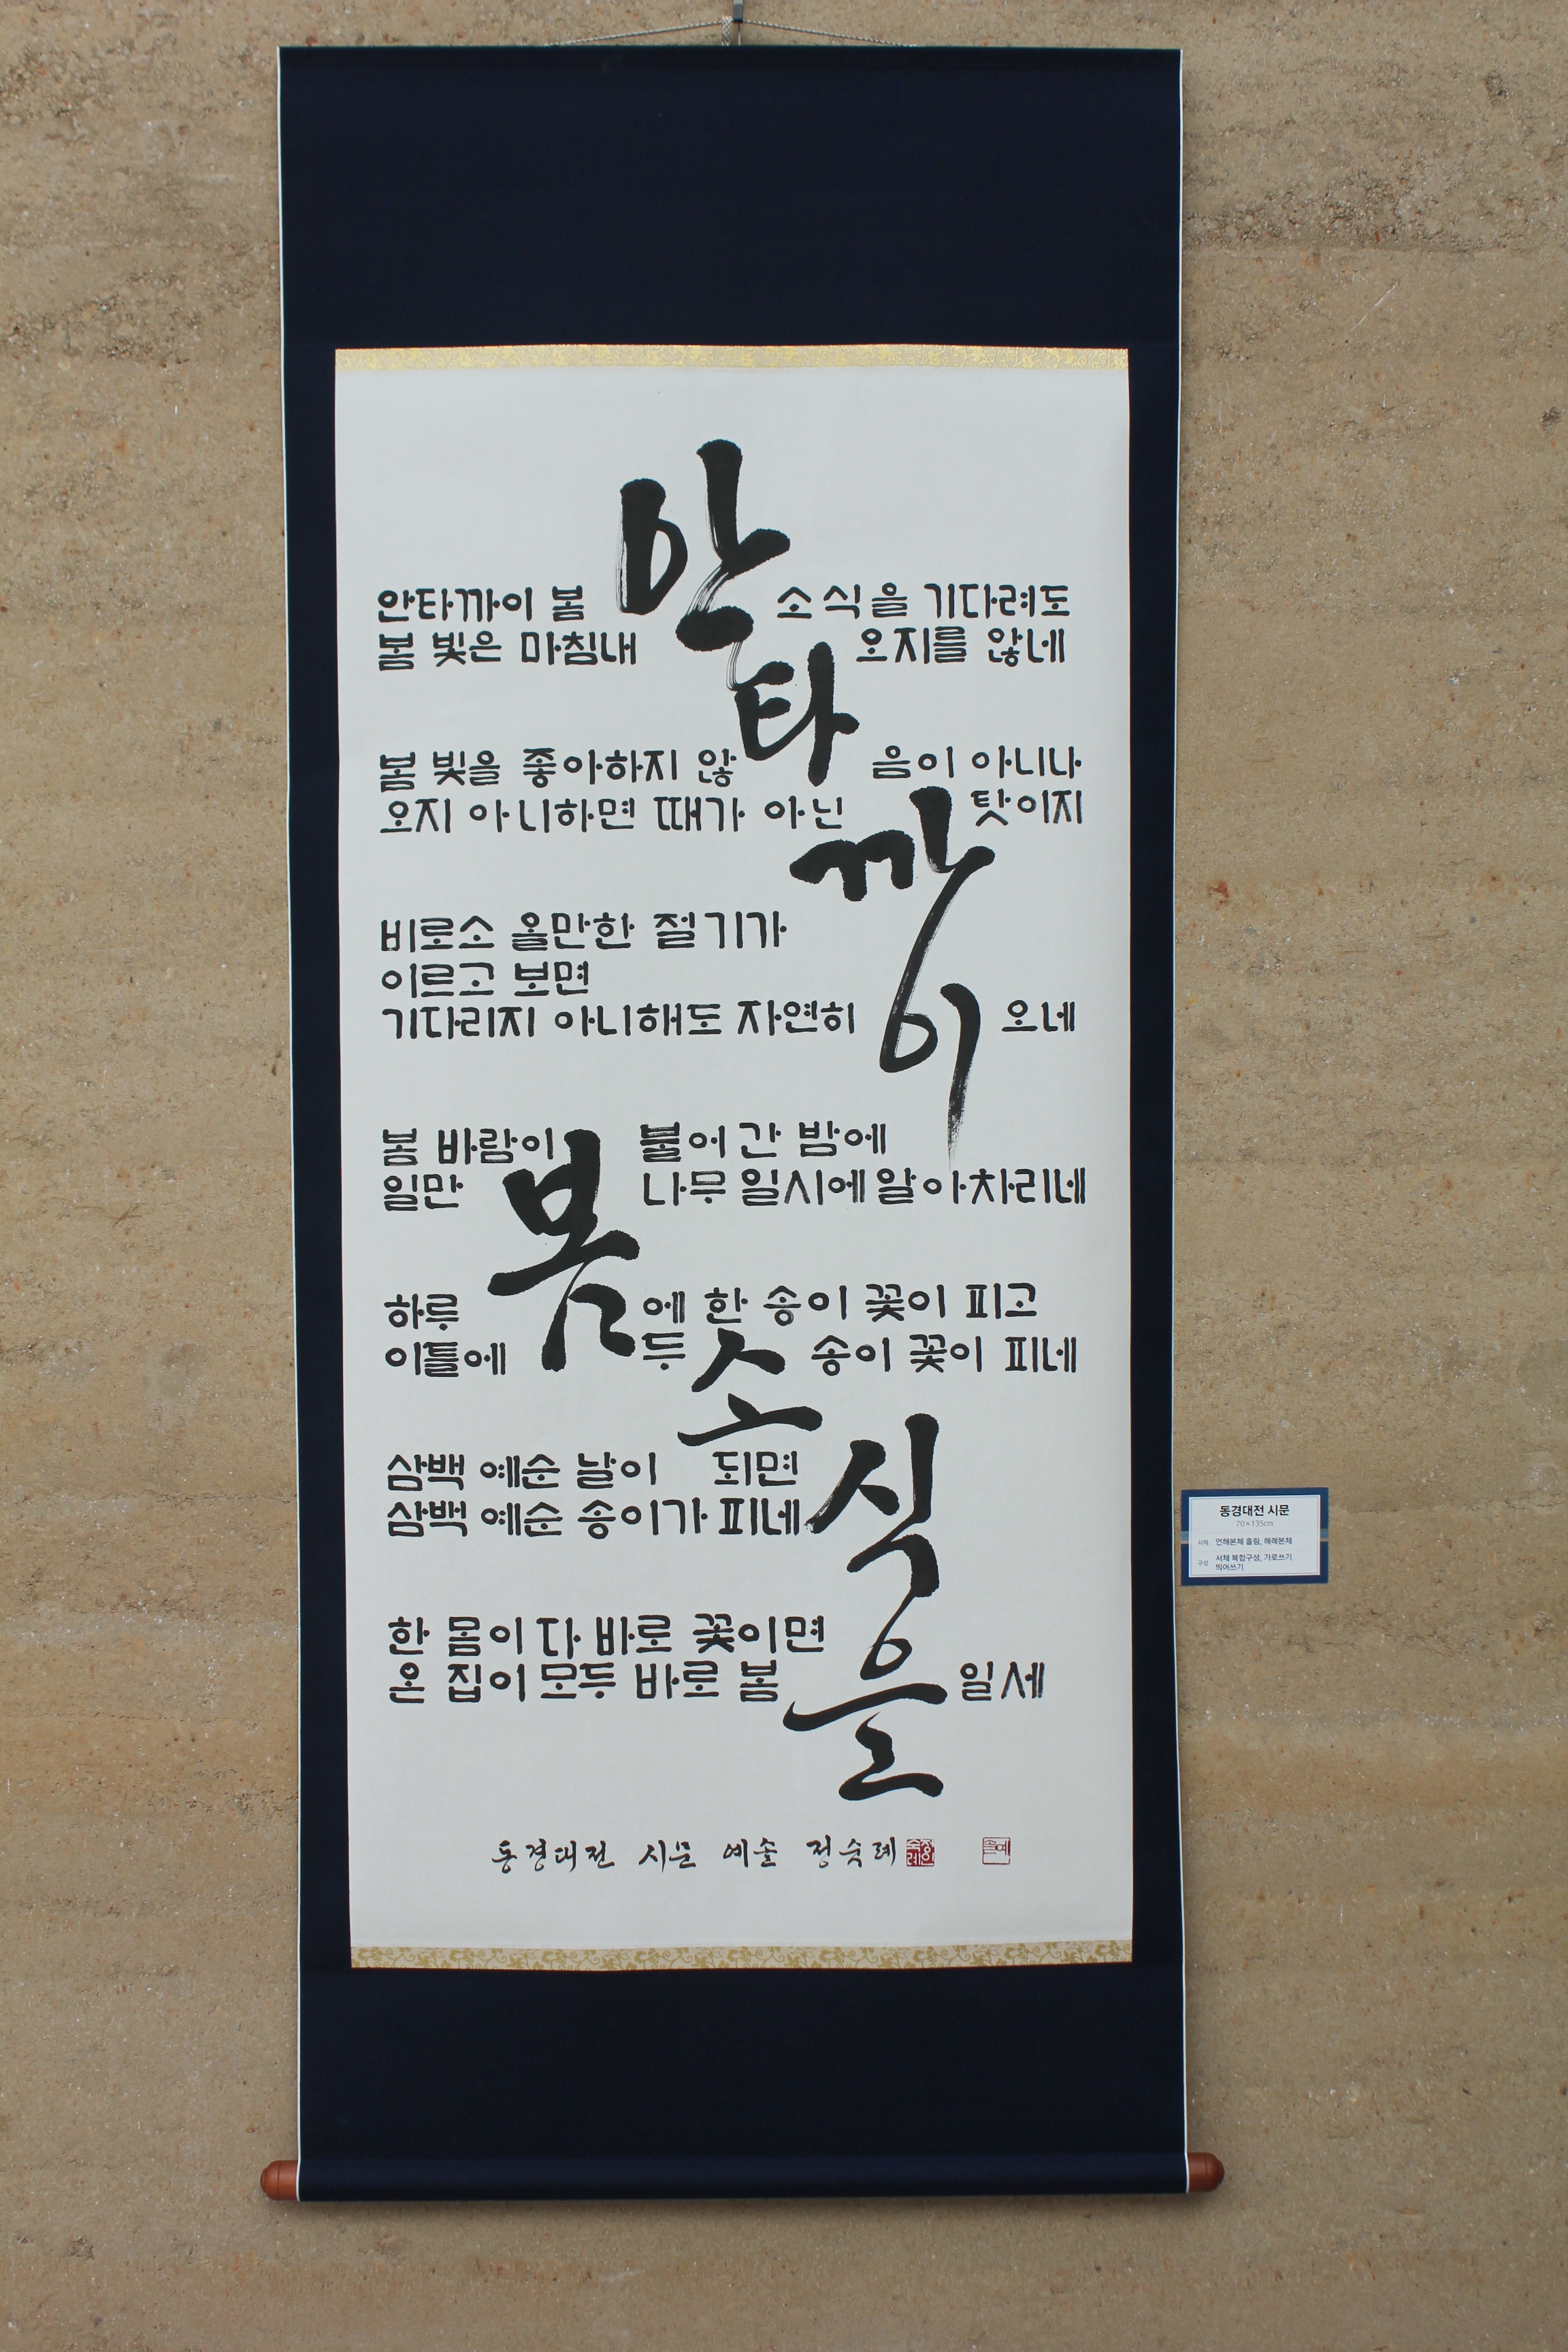 안타까이 봄 소식을
안타까이 봄 소식을 기다려도
봄 빛은 마침내 오지를 않네
봄 빛을 좋아하지 않음이 아니나
오지 아니하면 때가 아닌 탓이지
비로소 올만한 절기가
이르고 보면
기다리지 아니해도 자연히 오네
봄 바람이 불어 간 밤에
일만 나무 일시에 알아차리네
하루에 한 송이 꽃이 피고
이틀에 두 송이 꽃이 피네
삼백 예순 날이 되면
삼백 예순 송이가 피네
한 몸이 다 바로 꽃이면
온 집이 모두 바로 봄일세
동경대전 시문 예솔 정숙례
정숙례
예솔
동경대전 시문
70×135cm
서체 언해본체 흘림, 해례본체
구성 서체 복합구성, 가로쓰기
띄어쓰기